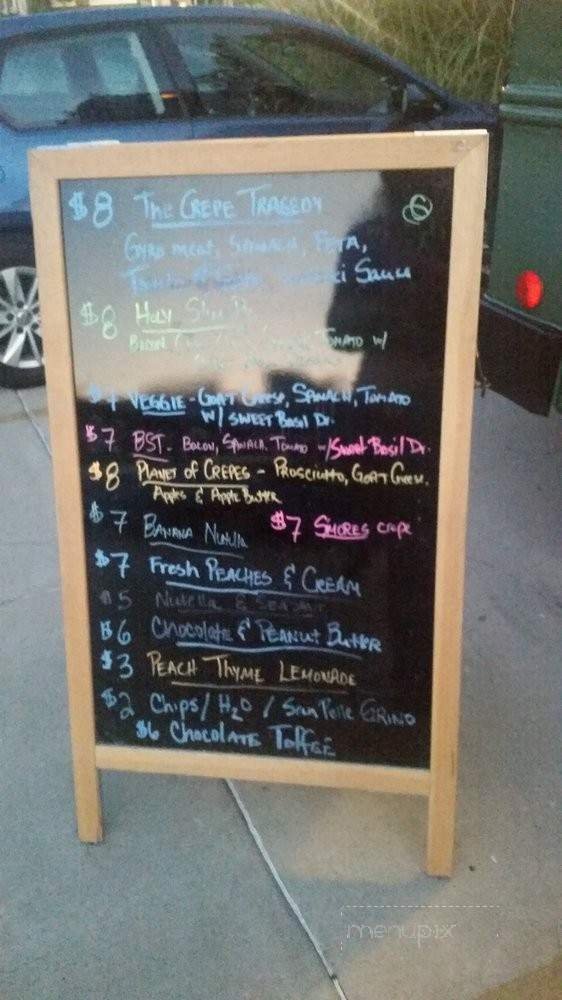 $8 The CREPE TRAGEDY
Gyro meat, SPINACH, FETA,
Sauce
$8 Holy
Bacon TOMATO w/
$7 VEGGIE - GOAT Cheese, SPINACH, TOMATO
w/ SWEET Basil Dr.
$7 BST - BACON, SPINACH, TOMATO w/ Sweet Basil Dr.
$8 PLANET of CREPES - PROSCIUTTO, GOAT Cheese,
Apples & Apple Butter
$7 BANANA Nutella $7 SMORES crepe
$7 Fresh PEACHES & CREAM
$5 Nutella &
$6 Chocolate & PEANUT Butter
$3 PEACH THYME LEMONADE
$2 Chips / H2O /
$6 CHOCOLATE Toffee
menupix